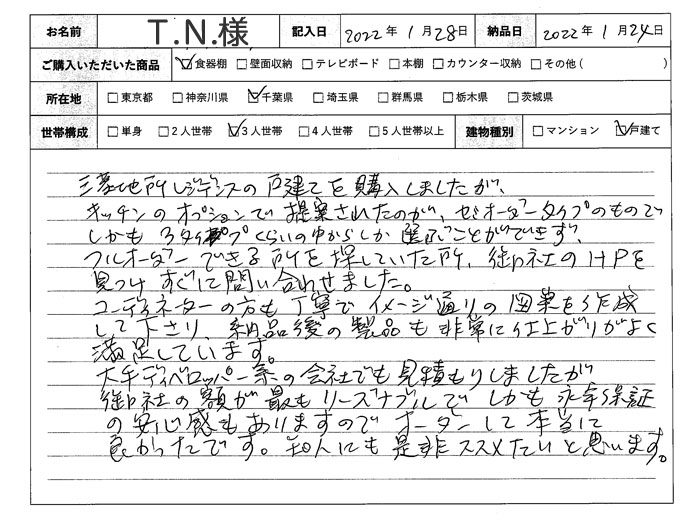 お名前 T.N.様 記入日 2022年 1月28日 納品日 2022年 1月24日
ご購入いただいた商品 ☑食器棚 □壁面収納 □テレビボード □本棚 □カウンター収納 □その他( )
所在地 □東京都 □神奈川県 ☑千葉県 □埼玉県 □群馬県 □栃木県 □茨城県
世帯構成 □単身 □2人世帯 ☑3人世帯 □4人世帯 □5人世帯以上 建物種別 □マンション ☑戸建て
三菱地所レジデンスの戸建てを購入しましたが、
キッチンのオプションで提案されたのが、セミオーダータイプのもので
しかも3タイプくらいの中からしか選ぶことができず、
フルオーダーできる所を探していた所、御社のHPを
見つけすぐに問い合わせました。
コーディネーターの方も丁寧でイメージ通りの図案を作成
して下さり、納品後の製品も非常に仕上がりがよく
満足しています。
大手ディベロッパー系の会社でも見積もりしましたが
御社の額が最もリーズナブルで しかも永年保証
の安心感もありますのでオーダーして本当に
良かったです。知人にも是非ススメたいと思います。